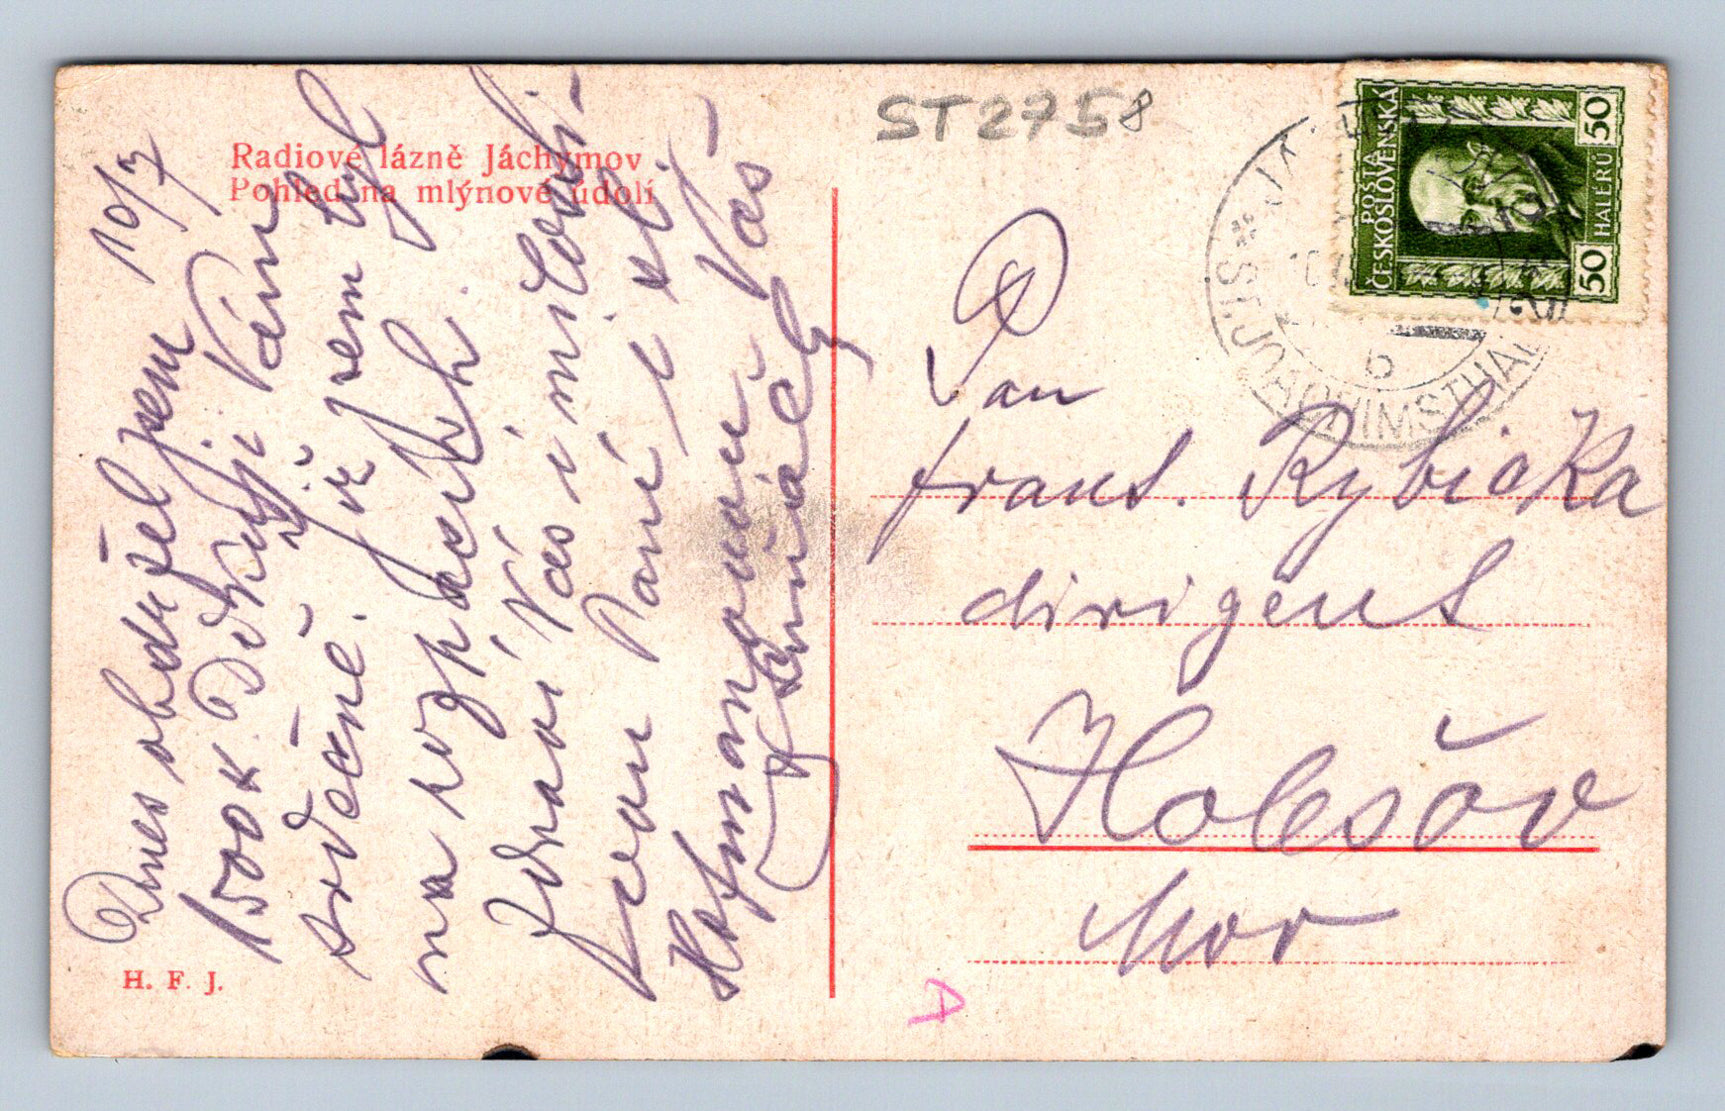 Radiové lázně Jáchymov
Pohled na mlýnové údolí
10/7
Dnes obdržel jsem
1500 K. Děkuji Vám
srdečně. Již jsem byl
na rozpacích.
Zdraví Vás i mileti-
Paní i
Vás
H. F. J.
ST2758
POŠTA
ČESKOSLOVENSKÁ
50 HALÉRŮ 50
ST. JOACHIMSTHAL
b
Pan
Frant. Rybička
dirigent
Holešov
Mor